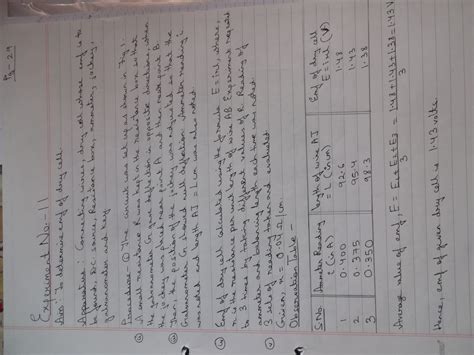 Pg-29
Experiment No:-11
Aim:- To determine emf of dry cell.
Apparatus: Connecting wires, dry cell whose emf is to
be found, D.C source, Resistance box, ammeter, jockey,
galvanometer and key
Procedure: ① The circuit was set up as shown in fig 1.
A small resistance R was kept in the resistance box so that
the galvanometer G gave deflection in opposite directions when
the jockey was placed near point A and then near point B.
Then, the position of the jockey was adjusted so that the
Galvanometer G showed null deflection. Ammeter reading I
was noted and length AJ = L cm was also noted
Emf of dry cell calculated using the formula E = Inl, where,
n is the resistance per unit length of wire AB. Experiment
to 3 times by taking different values of R. Reading of
ammeter and balancing length each time was noted
3 sets of reading taken and evaluated
Given: n = 0.04 Ω/cm
Observation Table
S.No Ammeter Reading I (in A) length of wire AJ = L (in cm) Emf of dry cell E = Inl (V)
1 0.400 92.6 1.48
2 0.375 95.4 1.43
3 0.350 98.3 1.38
Average value of emf, E = E1+E2+E3 / 3 = 1.48+1.43+1.38 / 3 = 1.43V
Hence, emf of given dry cell is 1.43 volts.